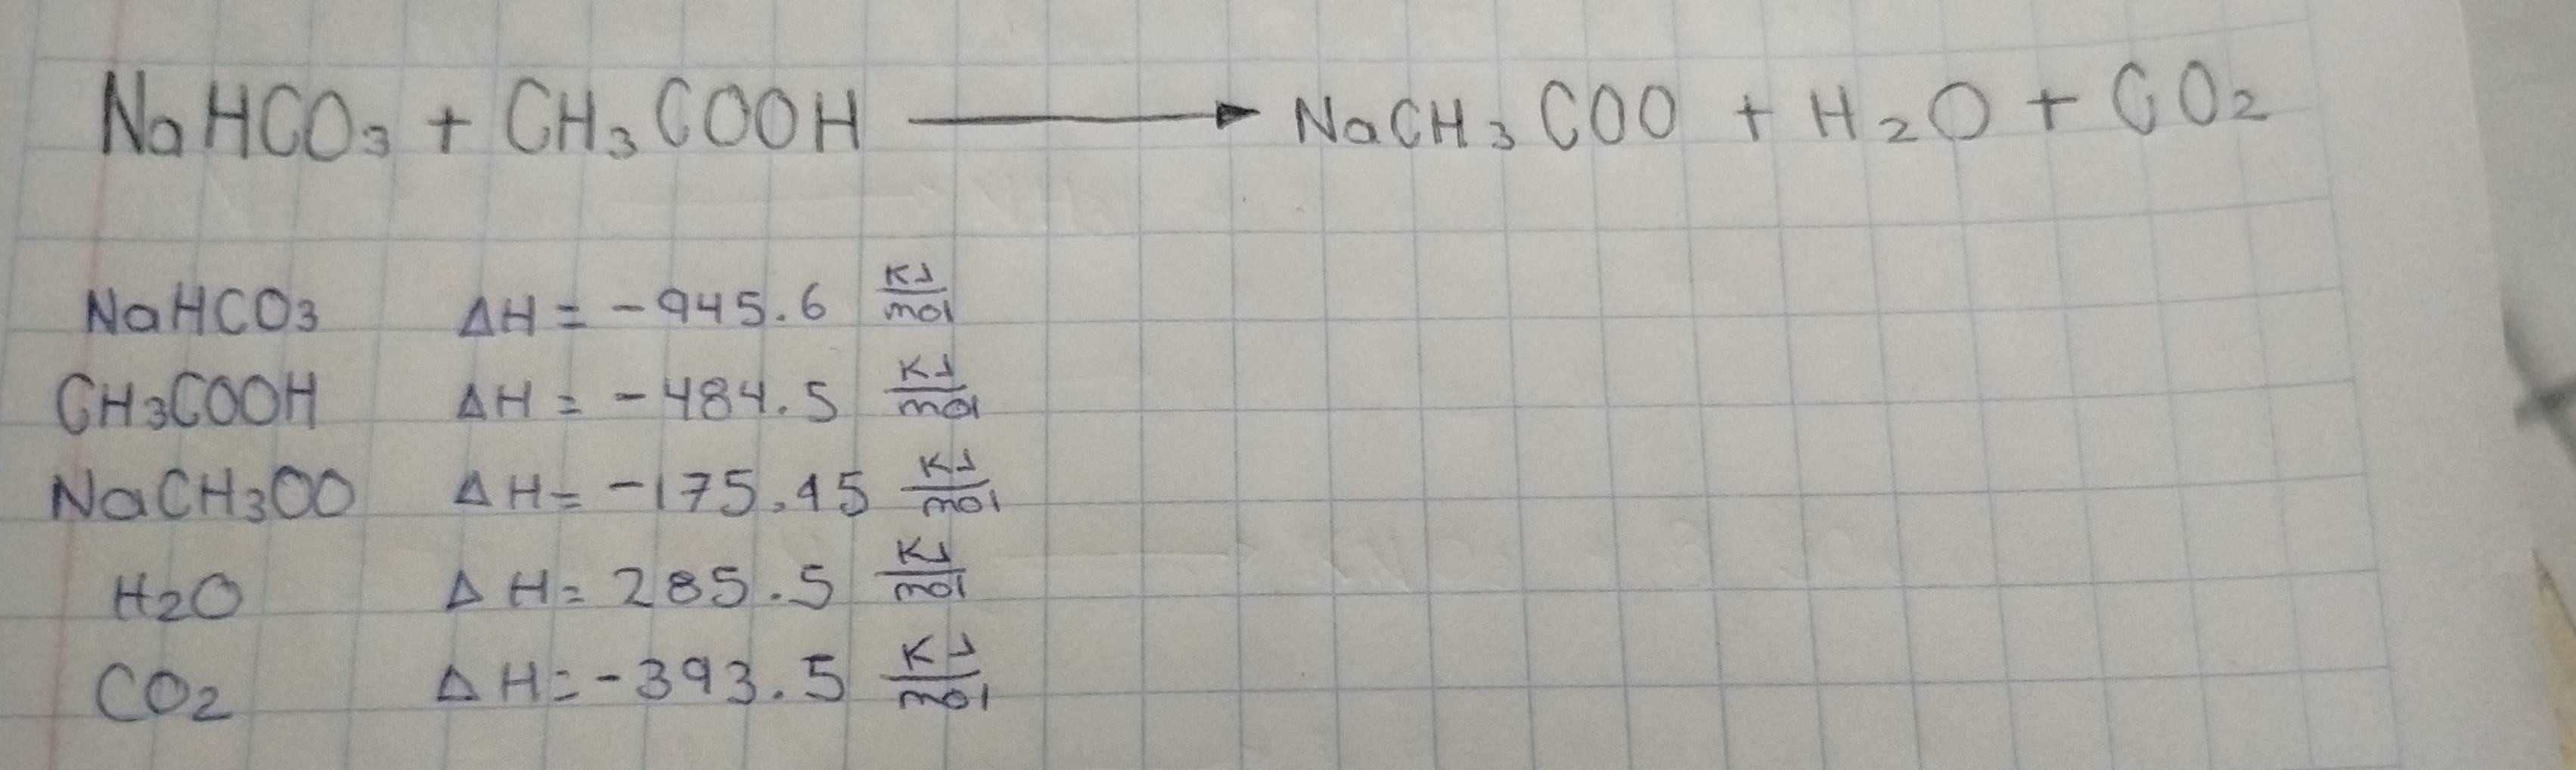 NaHCO₃ + CH₃COOH → NaCH₃COO + H₂O + CO₂
NaHCO₃ ΔH = -945.6 KJ/mol
CH₃COOH ΔH = -484.5 KJ/mol
NaCH₃OO ΔH = -175.45 KJ/mol
H₂O ΔH = 285.5 KJ/mol
CO₂ ΔH = -393.5 KJ/mol